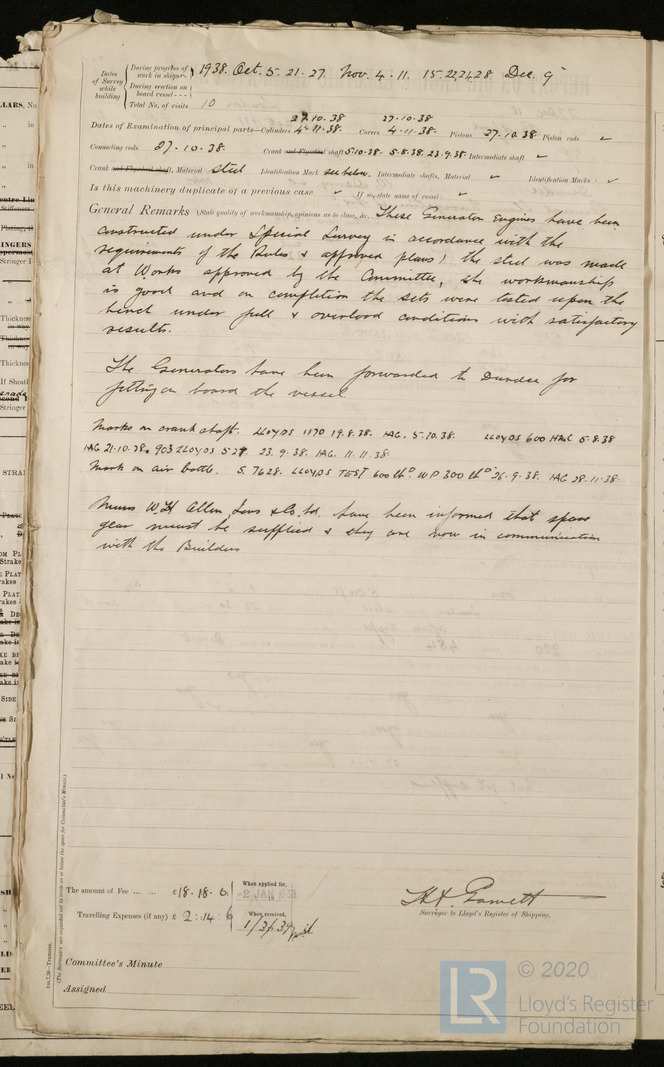 Dates of Survey while building
During progress of work in shops - - 1938. Oct. 5. 21. 27. Nov. 4. 11. 15. 22, 24. 28 Dec. 9
During erection on board vessel - - -
Total No. of visits 10
27.10.38 27.10.38
Dates of Examination of principal parts—Cylinders 4.11.38. Covers 4.11.38. Pistons 27.10.38 Piston rods
Connecting rods 27-10-38. Crank and Flywheel shaft 5.10.38. 5.8.38. 23.9.38. Intermediate shaft
Crank and Flywheel shaft, Material steel Identification Mark see below. Intermediate shafts, Material Identification Marks
Is this machinery duplicate of a previous case If so, state name of vessel
General Remarks (State quality of workmanship, opinions as to class, &c. These Generator Engines have been
constructed under Special Survey in accordance with the
requirements of the Rules & approved plans, the steel was made
at Works approved by the Committee, the workmanship
is good and on completion the sets were tested upon the
bench under full & overload conditions with satisfactory
results.
The Generators have been forwarded to Dundee for
fitting on board the vessel
Marks on crank shaft. LLOYDS 1170 19.8.38. IAG. 5.10.38. LLOYDS 600 5.8.38
IAG 21.10.38. 903 LLOYDS 23.9.38. IAG. 11.11.38.
Mark on air bottle. S. 7628. LLOYDS TEST 600 lb WP 300 lb 26.9.38. IAG 28.11.38.
Messrs W.H. Allen, Sons & Co. Ltd. have been informed that spare
gear must be supplied & they are now in communication
with the Builders
The amount of Fee ... ... £ 18.18.0 When applied for,
Travelling Expenses (if any) £ 2.14.6 When received,
Surveyor to Lloyd's Register of Shipping.
Committee's Minute
Assigned
(The Surveyors are requested not to write on or below the space for Committee's Minute.)
© 2020
LR
Lloyd's Register
Foundation